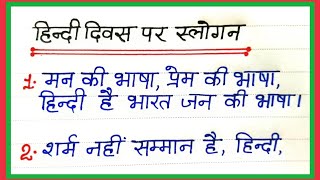 हिन्दी दिवस पर स्लोगन
1. मन की भाषा, प्रेम की भाषा,
हिन्दी है भारत जन की भाषा।
2. शर्म नहीं सम्मान है, हिन्दी,